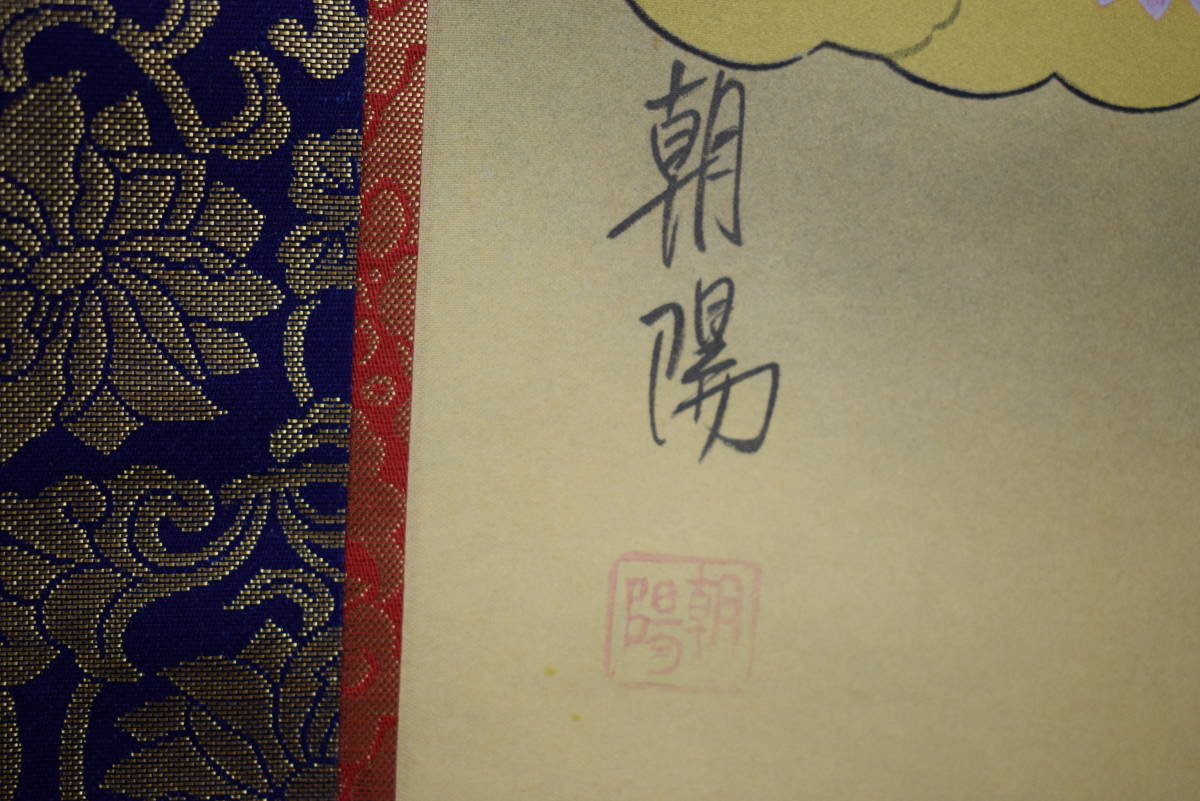 朝陽
朝陽